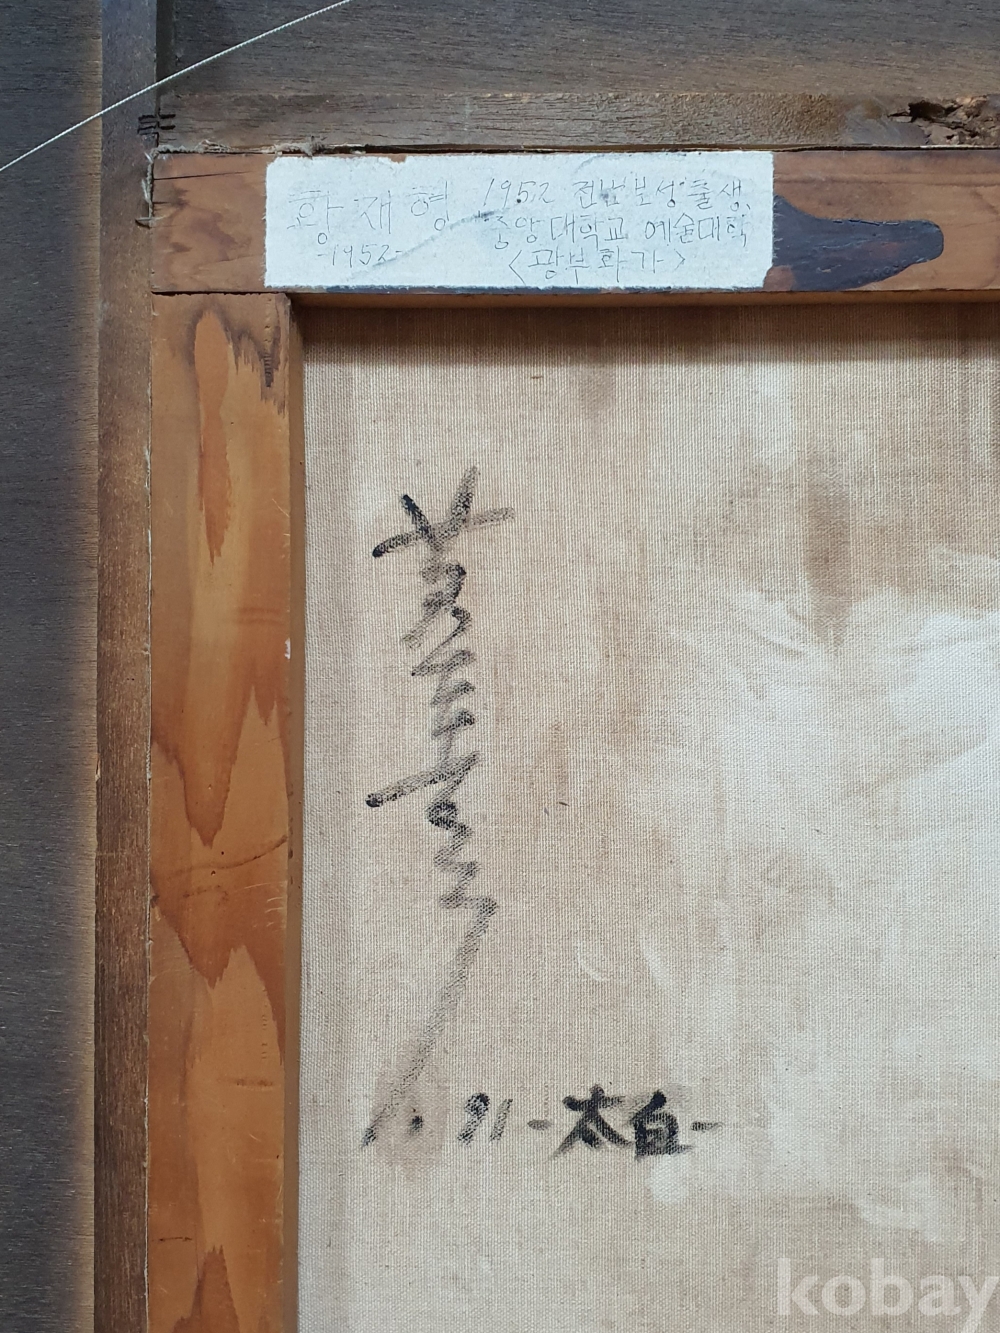 황재형 1952 전남보성출생,
-1952- 중앙대학교 예술대학
<광부화가>
91-太白-
kobay